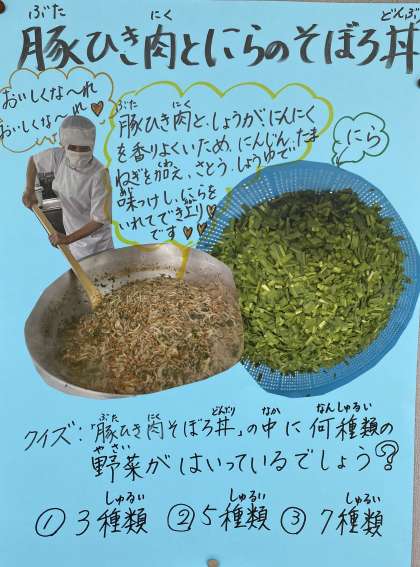 ぶた にく どんぶ
豚ひき肉とにらのそぼろ丼
おいしくな〜れ
おいしくな〜れ
ぶた にく
豚ひき肉と、しょうがにんにく
を香りよくいため、にんじん、たま
ねぎを加え、さとう、しょうゆで、
味つけし、にらを
いれてでき上り
です
にら
ぶた にく どんぶり なか なんしゅるい
クイズ:「豚ひき肉そぼろ丼」の中に何種類の
やさい
野菜がはいっているでしょう?
しゅるい しゅるい しゅるい
①3種類 ②5種類 ③7種類